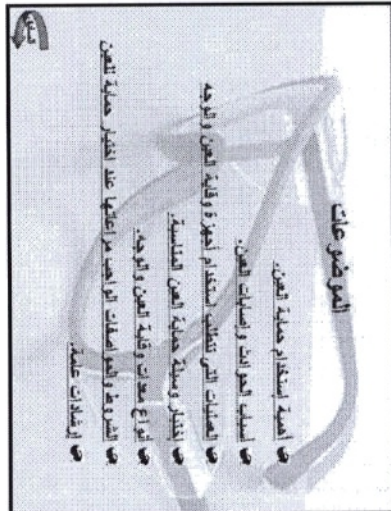 الموضوعات
أهمية إستخدام حماية العين.
أسباب الحوادث وإصابات العين.
العمليات التي تتطلب إستخدام أجهزة وقاية العين والوجه
إختيار وسيلة حماية العين المناسبة.
أنواع معدات وقاية العين والوجه.
الشروط والمواصفات الواجب مراعاتها عند اختيار حماية للعين
إرشادات عامة.